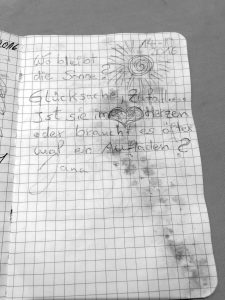 Wo bleibt
die Sonne?
Glücksache, Zufall
Ist sie im Herzen
oder braucht es öfter
mal ein Aufladen?
Jana